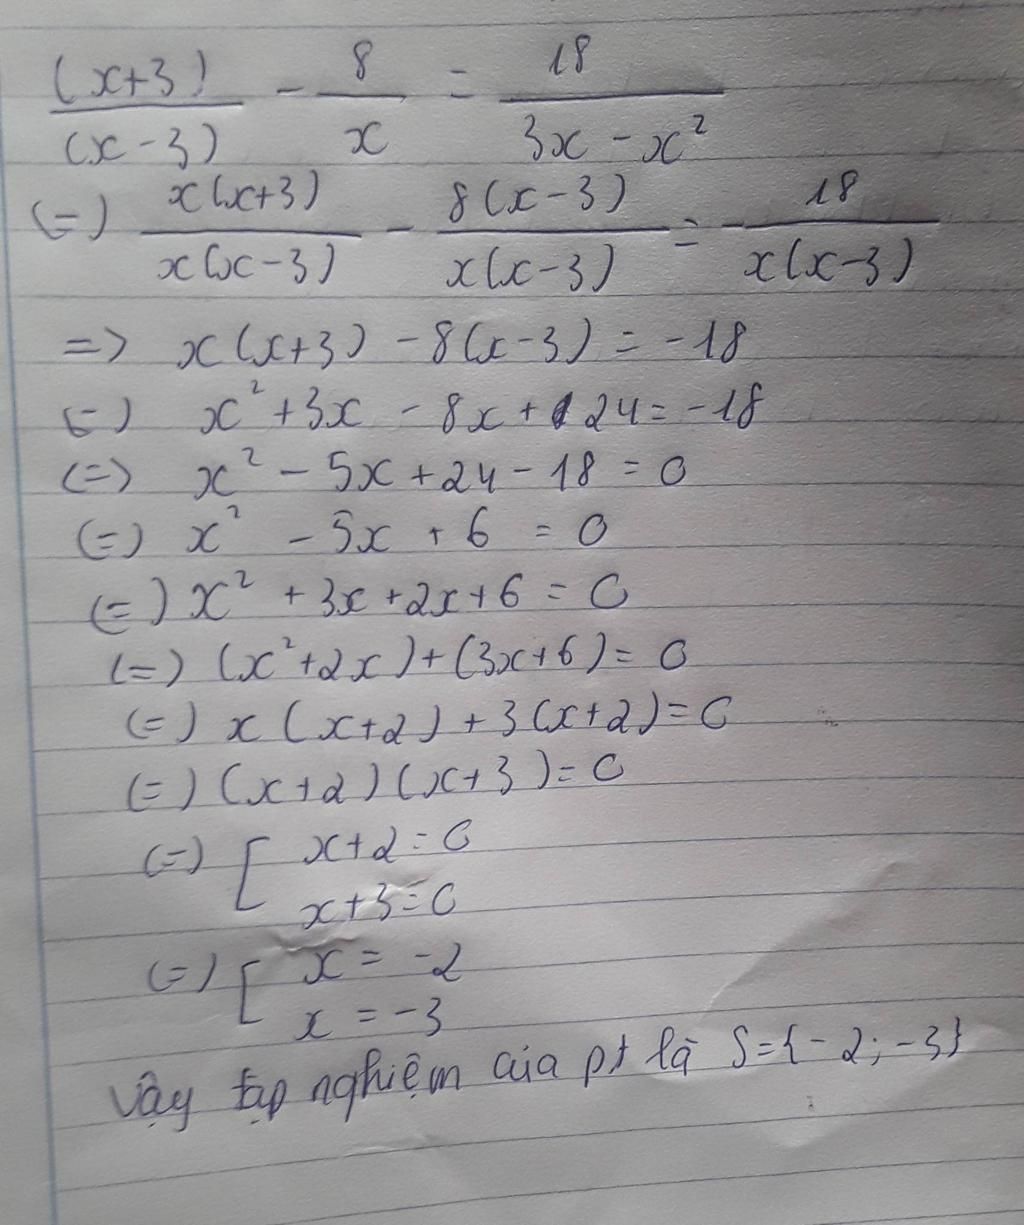 (x+3)/(x-3) - 8/x = 18/(3x - x²)
(=) x(x+3)/x(x-3) - 8(x-3)/x(x-3) = - 18/x(x-3)
=> x(x+3) - 8(x-3) = -18
(=) x² + 3x - 8x + 24 = -18
(=) x² - 5x + 24 - 18 = 0
(=) x² - 5x + 6 = 0
(=) x² + 3x + 2x + 6 = 0
(=) (x² + 2x) + (3x+6) = 0
(=) x(x+2) + 3(x+2) = 0
(=) (x+2)(x+3) = 0
(=) [ x+2 = 0
x+3 = 0
(=) [ x = -2
x = -3
Vậy tập nghiệm của pt là S={-2; -3}